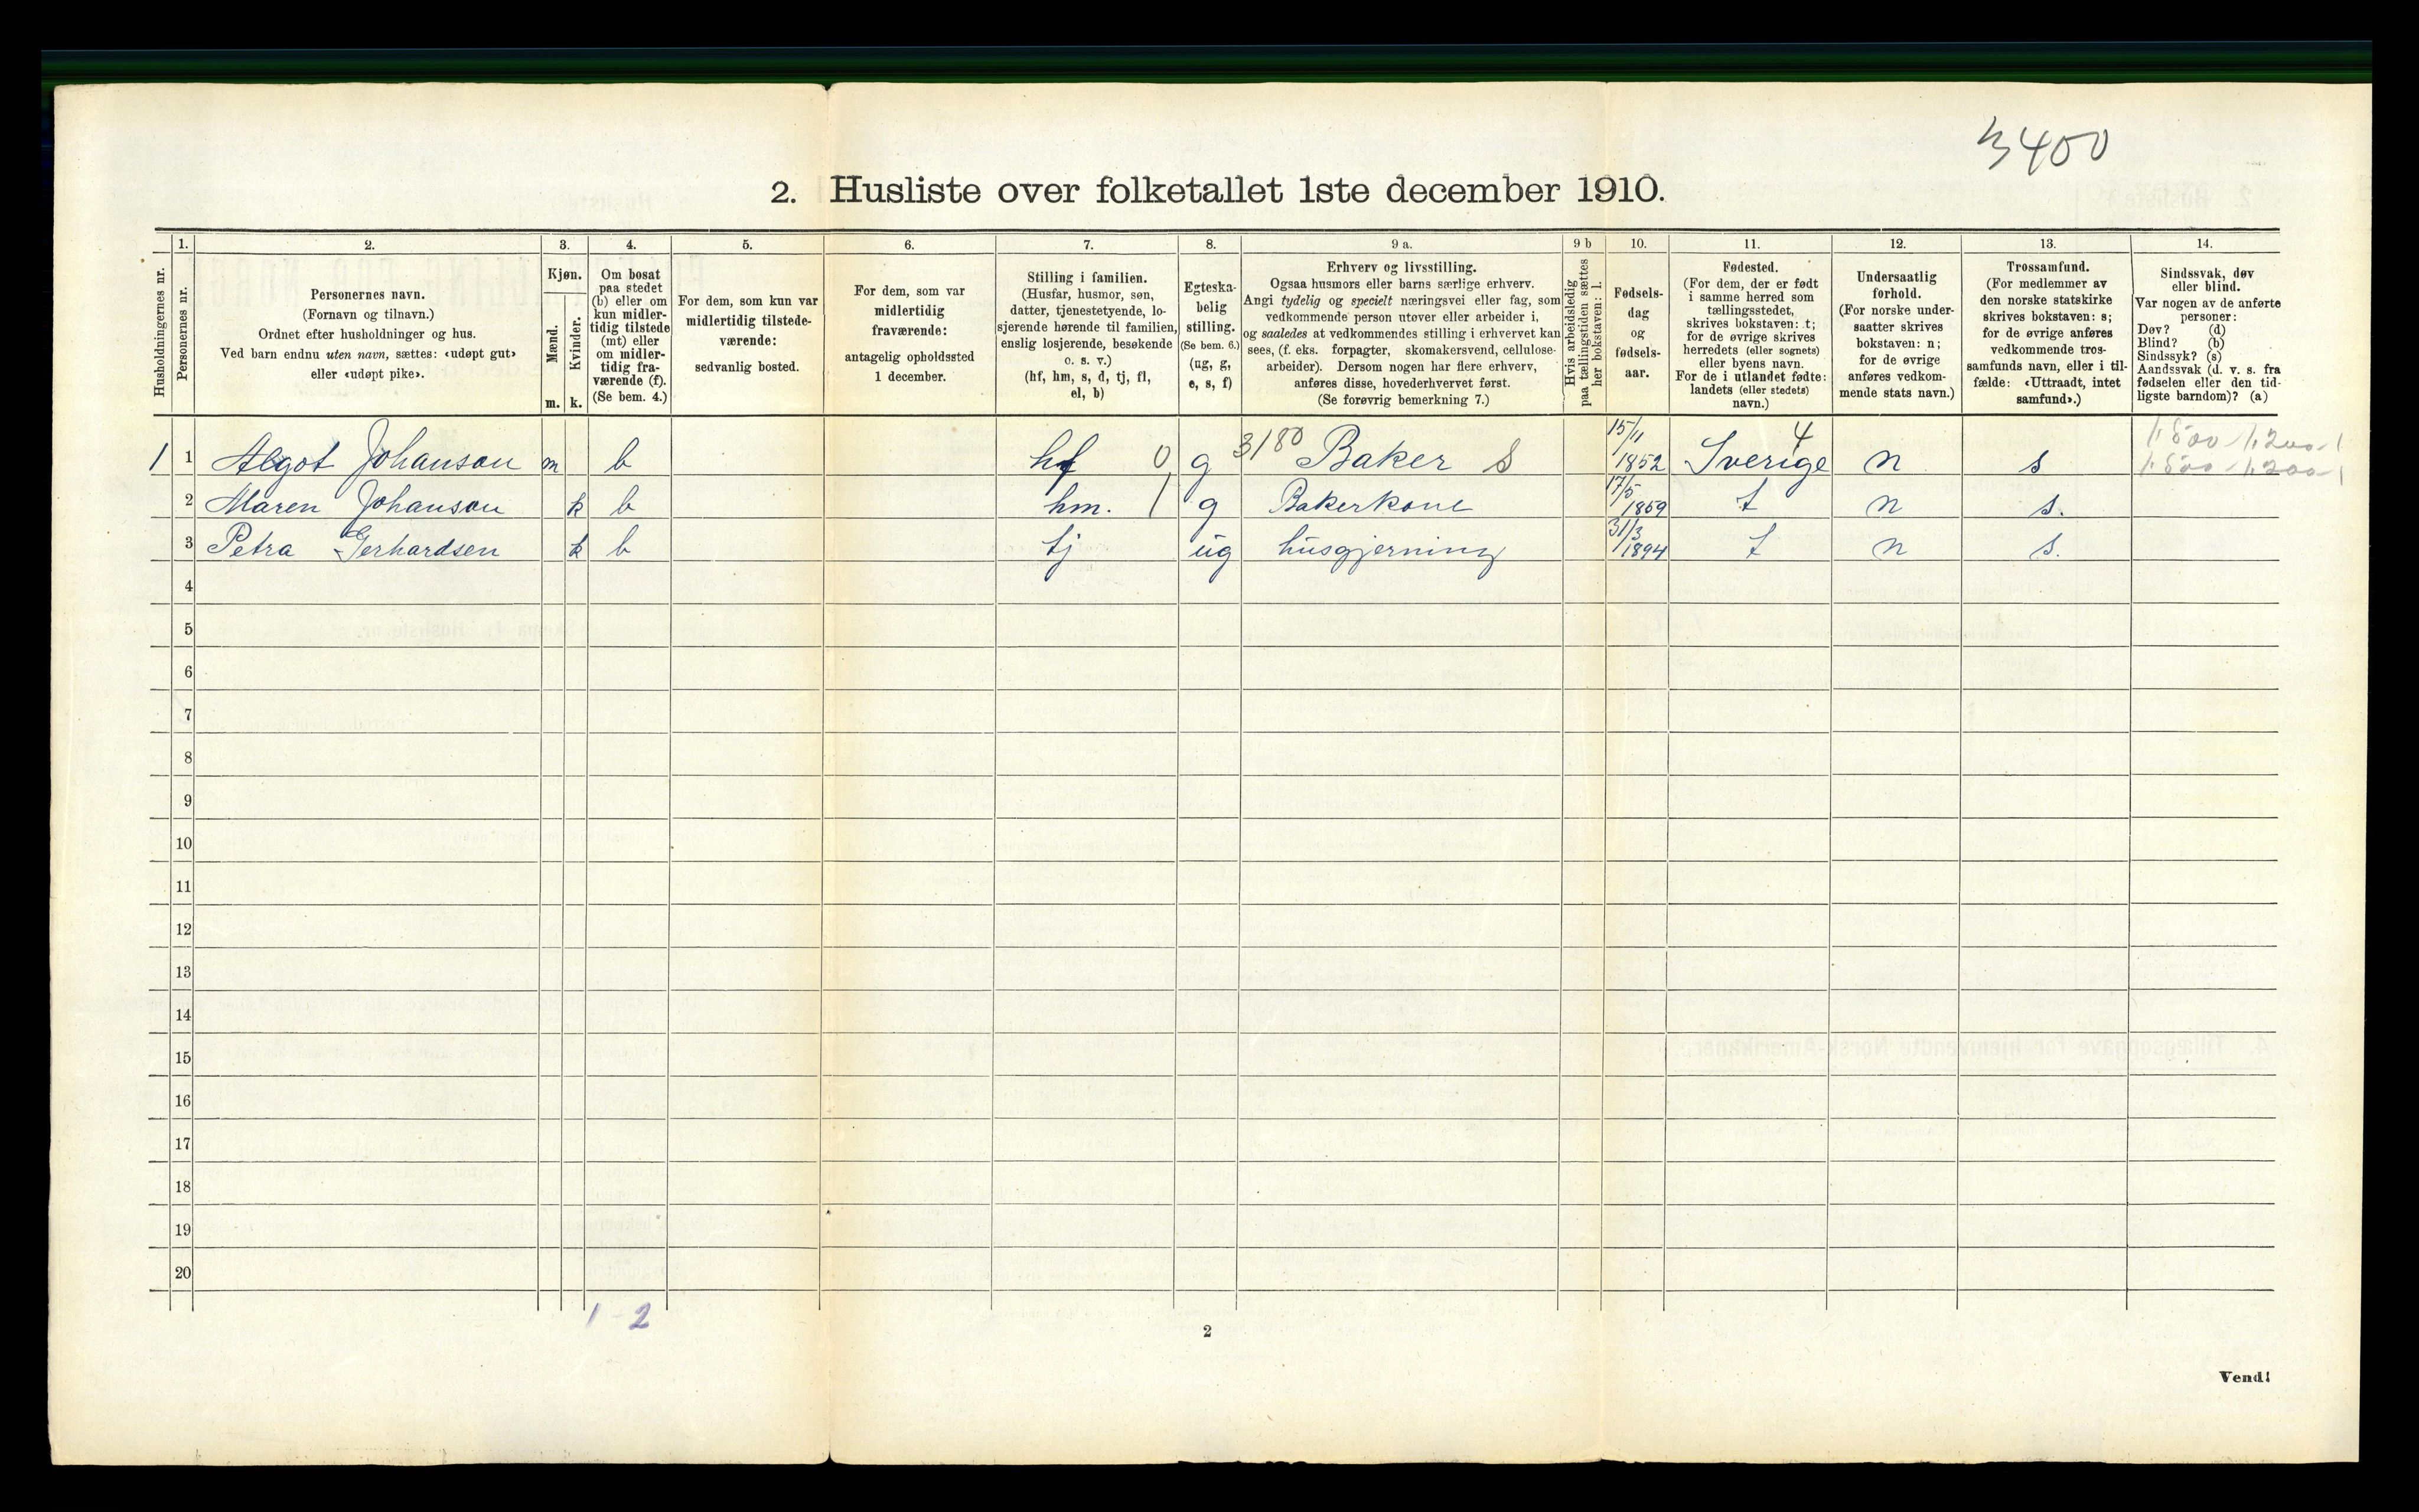 3400
2. Husliste over folketallet 1ste december 1910.
1. 2. 3. 4. 5. 6. 7. 8. 9 a. 9 b 10. 11. 12. 13. 14.
Husholdningernes nr.
Personernes nr.
Personernes navn.
(Fornavn og tilnavn.)
Ordnet efter husholdninger og hus.
Ved barn endnu uten navn, sættes: «udøpt gut»
eller «udøpt pike».
Kjøn.
Mænd.
Kvinder.
m. k.
Om bosat
paa stedet
(b) eller om
kun midler-
tidig tilstede
(mt) eller
om midler-
tidig fra-
værende (f).
(Se bem. 4.)
For dem, som kun var
midlertidig tilstede-
værende:
sedvanlig bosted.
For dem, som var
midlertidig
fraværende:
antagelig opholdssted
1 december.
Stilling i familien.
(Husfar, husmor, søn,
datter, tjenestetyende, lo-
sjerende hørende til familien,
enslig losjerende, besøkende
o. s. v.)
(hf, hm, s, d, tj, fl,
el, b)
Egteska-
belig
stilling.
(Se bem. 6.)
(ug, g,
e, s, f)
Erhverv og livsstilling.
Ogsaa husmors eller barns særlige erhverv.
Angi tydelig og specielt næringsvei eller fag, som
vedkommende person utøver eller arbeider i,
og saaledes at vedkommendes stilling i erhvervet kan
sees, (f. eks. forpagter, skomakersvend, cellulose-
arbeider). Dersom nogen har flere erhverv,
anføres disse, hovederhvervet først.
(Se forøvrig bemerkning 7.)
Hvis arbeidsledig
paa tællingstiden sættes
her bokstaven: l.
Fødsels-
dag
og
fødsels-
aar.
Fødested.
(For dem, der er født
i samme herred som
tællingsstedet,
skrives bokstaven: t;
for de øvrige skrives
herredets (eller sognets)
eller byens navn.
For de i utlandet fødte:
landets (eller stedets)
navn.)
Undersaatlig
forhold.
(For norske under-
saatter skrives
bokstaven: n;
for de øvrige
anføres vedkom-
mende stats navn.)
Trossamfund.
(For medlemmer av
den norske statskirke
skrives bokstaven: s;
for de øvrige anføres
vedkommende tros-
samfunds navn, eller i til-
fælde: «Uttraadt, intet
samfund».)
Sindssvak, døv
eller blind.
Var nogen av de anførte
personer:
Døv? (d)
Blind? (b)
Sindssyk? (s)
Aandssvak (d. v. s. fra
fødselen eller den tid-
ligste barndom)? (a)
1 1 Algot Johanson m b hf 0 g 3180 Baker S 15/11 1852 Sverige 4 n s
2 Maren Johanson k b hm. 1 g Bakerkone 17/5 1859 t n s.
3 Petra Gerhardsen k b tj ug husgjerning 31/3 1894 t n s.
4
5
6
7
8
9
10
11
12
13
14
15
16
17
18
19
20
1 - 2
2
Vend!